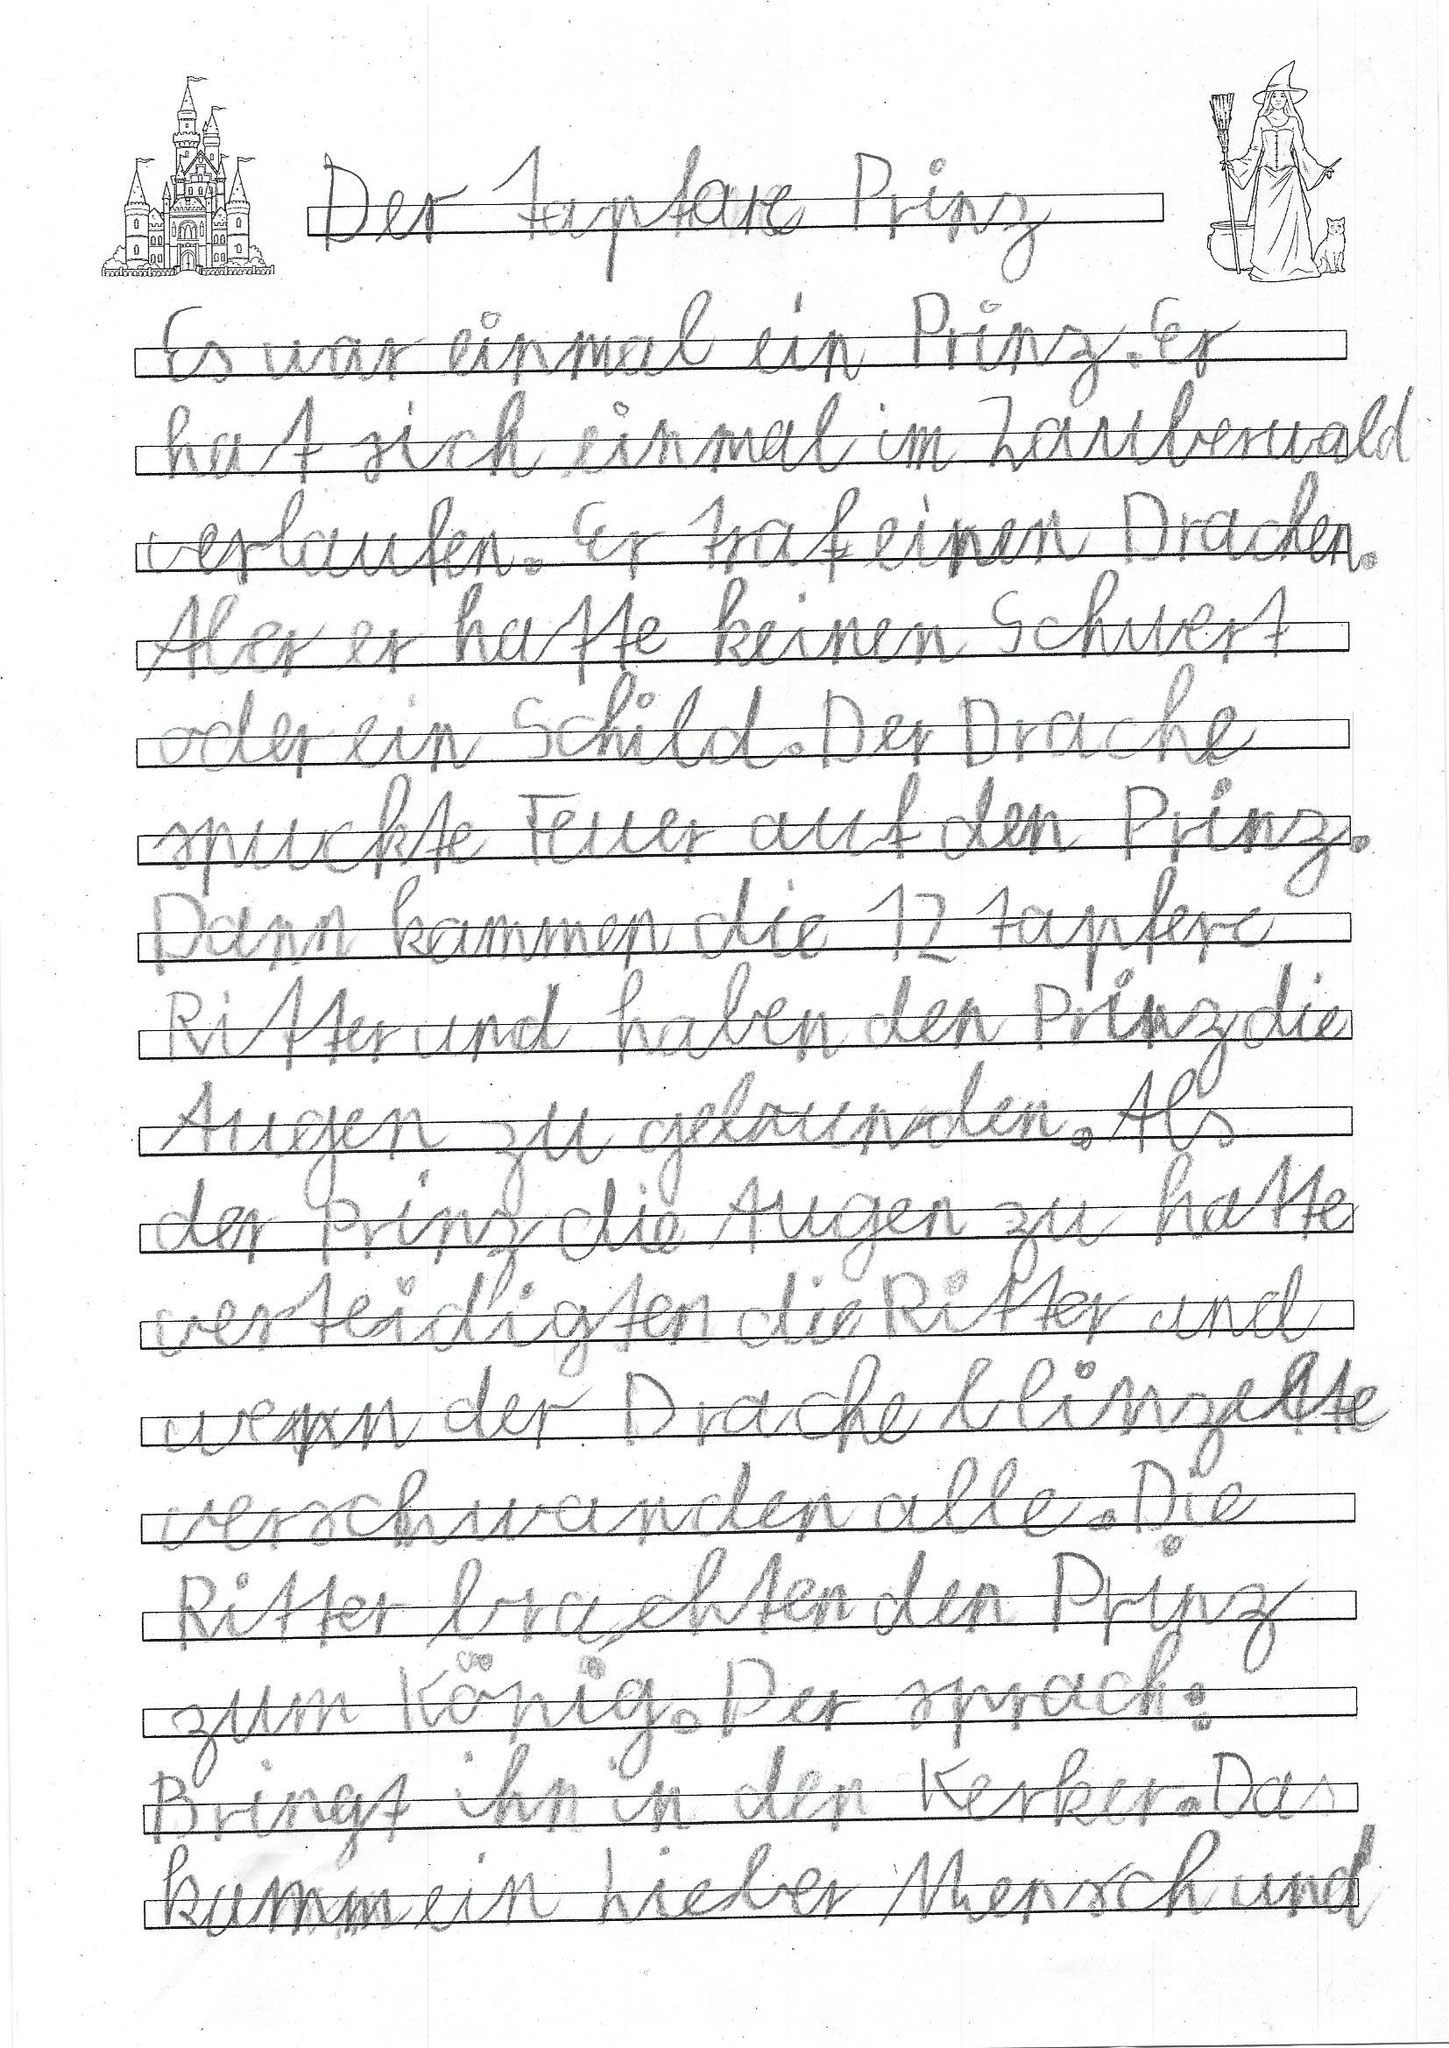 Der tapfare Prinz
Es war einmal ein Prinz. Er
hat sich einmal im Zauberwald
verlaufen. Er traf einen Drachen.
Aber er hatte keinen Schwert
oder ein Schild. Der Drache
spuckte Feuer auf den Prinz.
Dann kammen die 12 tapfere
Ritter und haben den Prinz die
Augen zu gebunden. Als
der Prinz die Augen zu hatte
verteidigten die Ritter und
wenn der Drache blinzelte
verschwanden alle. Die
Ritter brachten den Prinz
zum König. Der sprach:
Bringt ihn in den Kerker. Das
kumm ein Lieber Mensch und